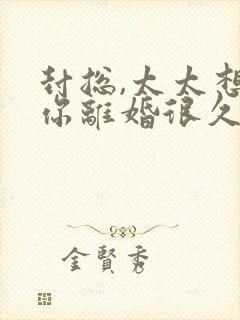 封总,太太想
你離婚很久
金賢秀